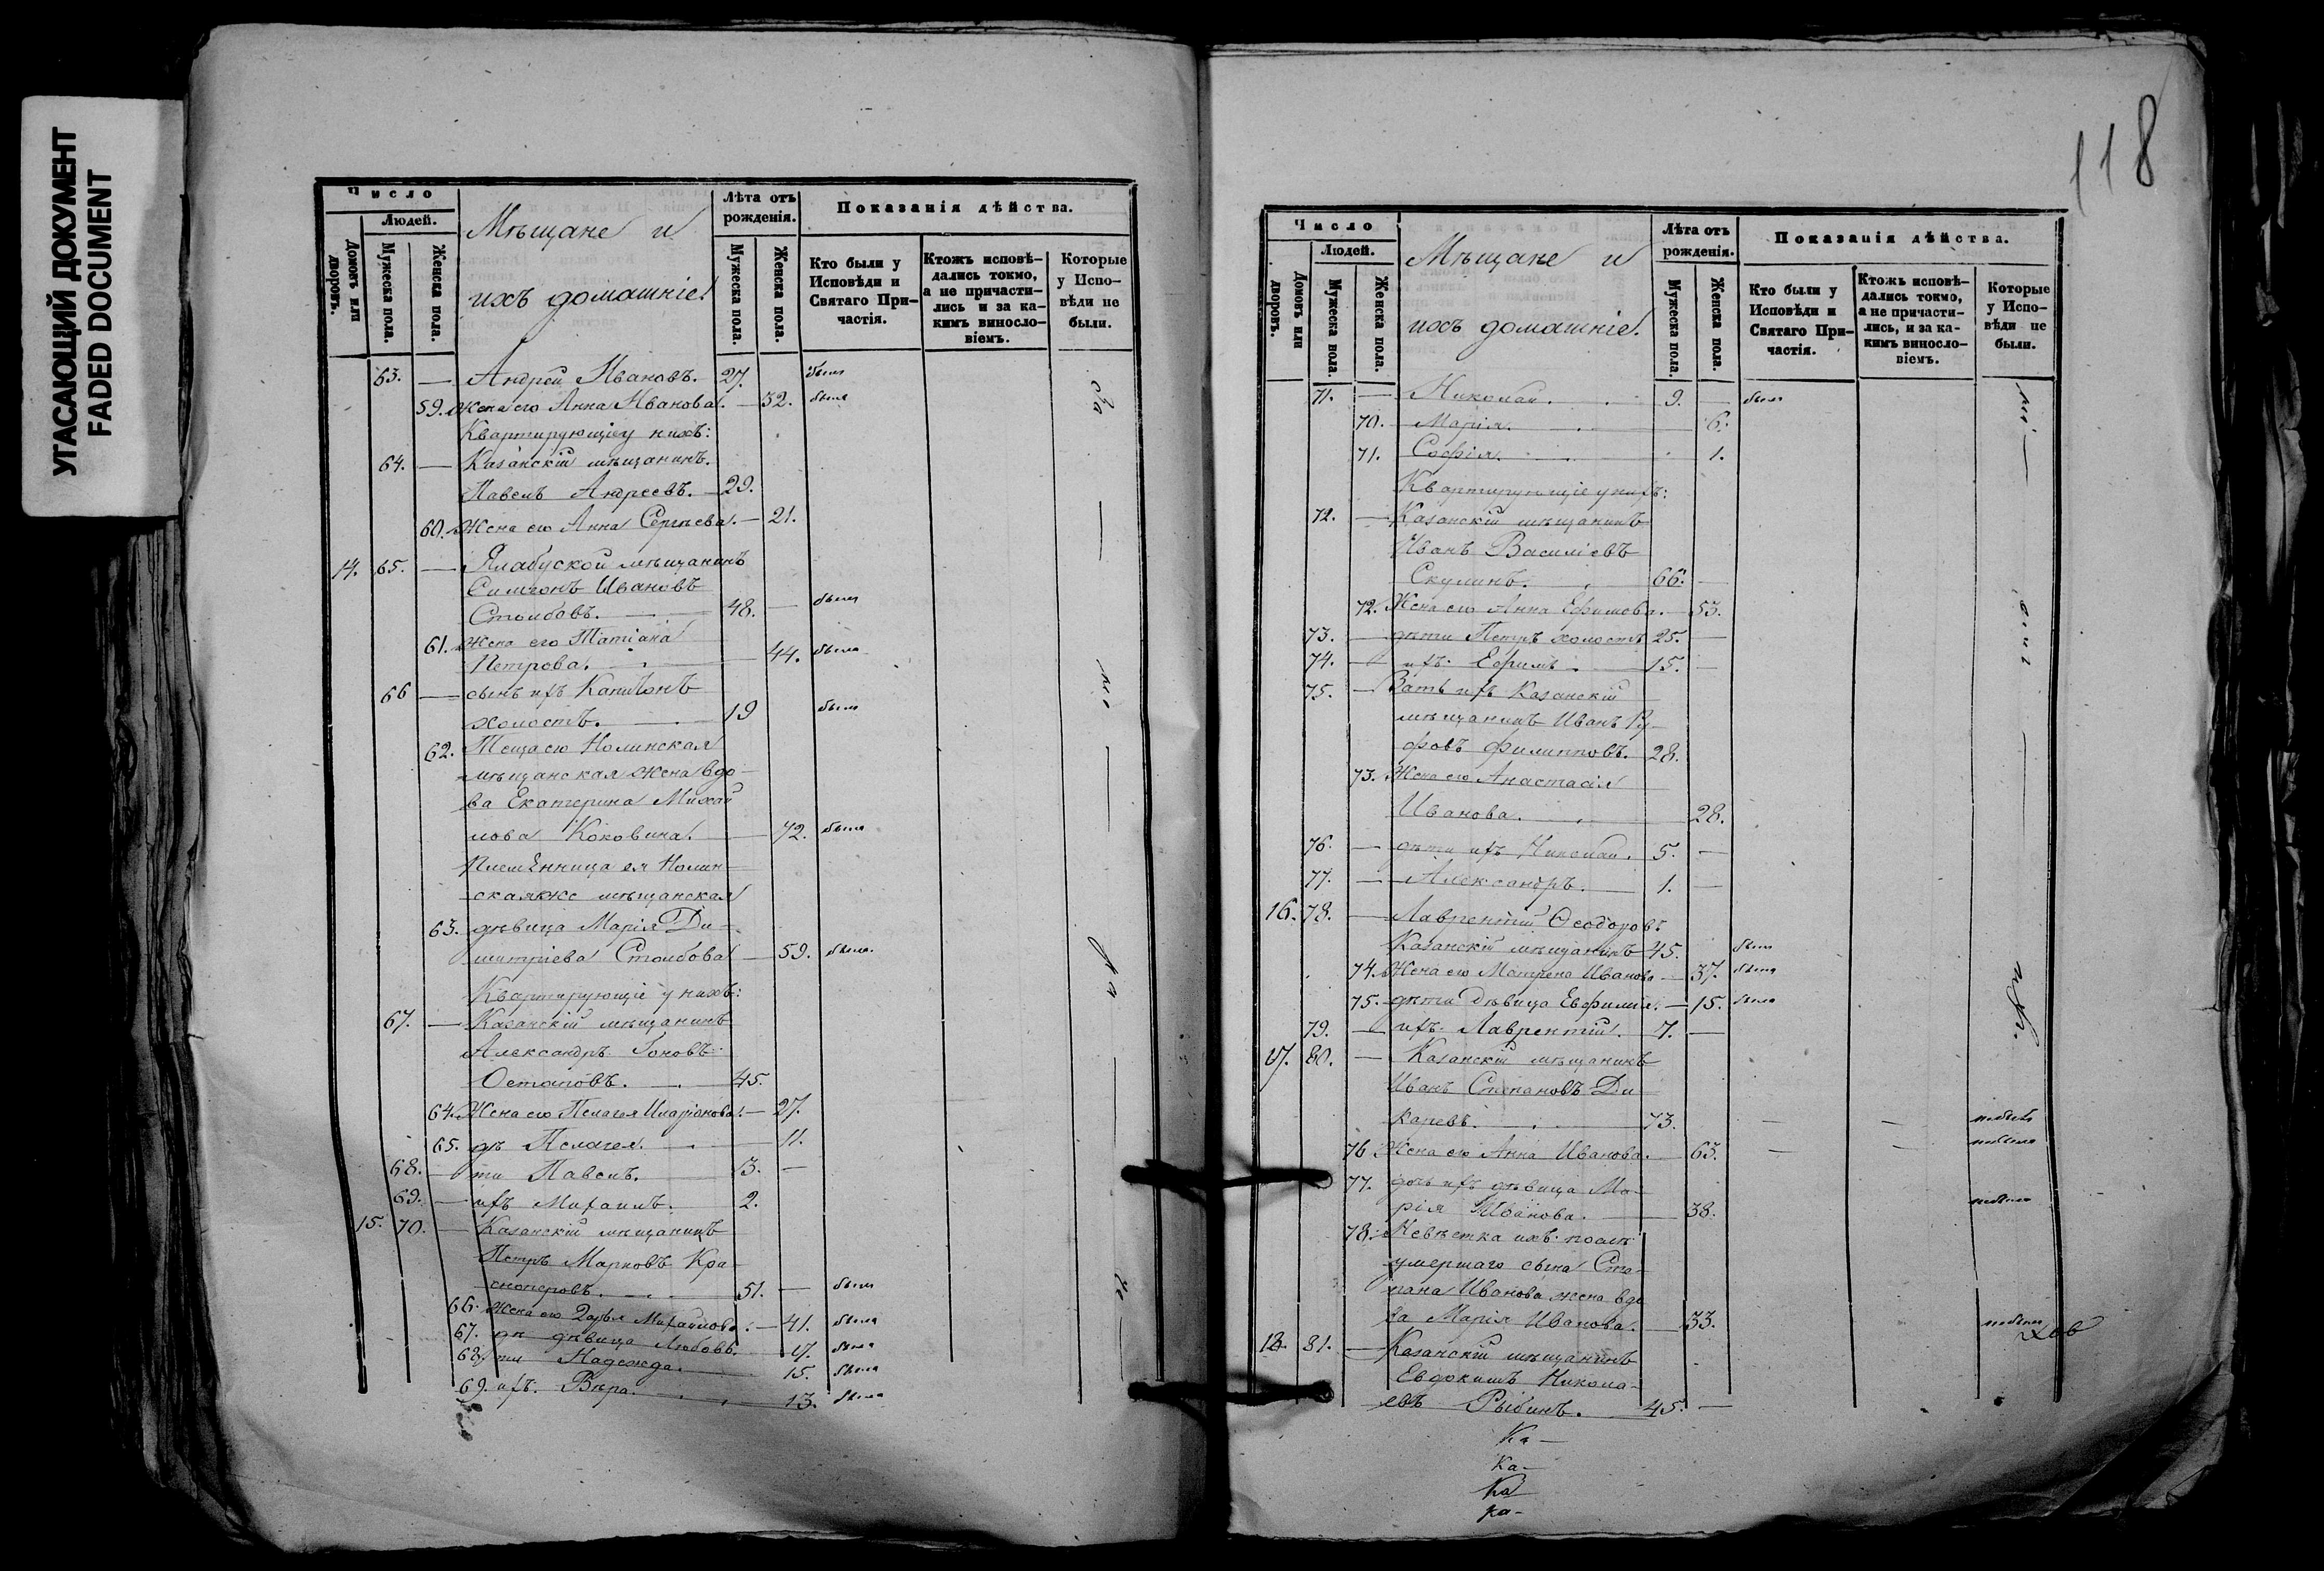 УГАСАЮЩИЙ ДОКУМЕНТ
FADED DOCUMENT
Число
Людей.
Домовъ или дворовъ.
Мужеска пола.
Женска пола.
Мѣщане и
ихъ домашніе.
Лѣта отъ
рожденія.
Мужеска пола.
Женска пола.
Показанія дѣйства.
Кто были у
Исповѣди и
Святаго При-
частія.
Ктожъ исповѣ-
дались токмо,
а не причасти-
лись и за ка-
кимъ виносло-
віемъ.
Которые
у Испо-
вѣди не
были.
63. — Андрей Ивановъ. 27. былъ
59. Жена его Анна Иванова. — 32. была
Квартирующіе у нихъ:
64. — Казанскій мѣщанинъ
Павелъ Андреевъ. — 29.
60. Жена его Анна Сергѣева. — 21.
14. 65. — Елабуской мѣщанинъ
Симеонъ Ивановъ
Столбовъ. — 48. — былъ
61. Жена его Татіана
Петрова. — 44. была
66 — сынъ ихъ Капитонъ
холостъ. — 19 былъ
62. Теща его Нолинская
мѣщанская жена вдо-
ва Екатерина Михай
лова Коковина. — 72. была
Племенница ея Нолин-
скаяже мѣщанская
63. дѣвица Марія Ди-
митріева Столбова — 59. была.
Квартирующіе у нихъ:
67. — Казанскій мѣщанинъ
Александръ Іоновъ
Остаповъ. — 45.
64. Жена его Пелагея Иларіонова. — 27.
65. дѣ Пелагея. — 11.
68. — ти Павелъ. 3. —
69. — ихъ Михаилъ. 2.
15. 70. — Казанскій мѣщанинъ
Петръ Марковъ Кра-
сноперовъ. — 51. — былъ
66. Жена его Дарья Михайлова. — 41. была
67. дѣ дѣвица Любовь. — 17. была
68. ти Надежда. 15. была
69. ихъ. Вѣра. — 13. была
118
Число
Людей.
Домовъ или дворовъ.
Мужеска пола.
Женска пола.
Мѣщане и
ихъ домашніе.
Лѣта отъ
рожденія.
Мужеска пола.
Женска пола.
Показанія дѣйства.
Кто были у
Исповѣди и
Святаго При-
частія.
Ктожъ исповѣ-
дались токмо,
а не причасти-
лись, и за ка-
кимъ виносло-
віемъ.
Которые
у Испо-
вѣди не
были.
71. — Николай. 9. — былъ
70. — Марія. — 6.
71. Софія. — 1.
Квартирующіе у нихъ:
72. — Казанскій мѣщанинъ
Иванъ Василіевъ
Скулинъ. 66. —
72. Жена его Анна Ефимова. — 53.
73. — дѣти Петръ холостъ 25. —
74. — ихъ. Ефимъ. — 15. —
75. — Зять ихъ Казанскій
мѣщанинъ Иванъ Ру-
фовъ Филипповъ. 28.
73. Жена его Анастасія
Иванова. 28.
76. — дѣти ихъ Николай. 5. —
77. — Александръ. 1. —
16. 78. — Лаврентій Ѳеодоровъ
Казанскій мѣщанинъ 45. былъ
74. Жена его Матрена Иванова — 37. была
75. дѣти дѣвица Евфимія. — 15. была
79. — ихъ. Лаврентій. 7. —
17. 80. — Казанскій мѣщанинъ
Иванъ Степановъ Ди
каревъ. 73. — — небылъ
76 Жена его Анна Иванова. 63. — — небыла
77. дочь ихъ дѣвица Ма-
рія Иванова. — 38. небыла
78. Невѣстка ихъ. послѣ
умершаго сына Сте-
пана Иванова жена вдо
ва Марія Иванова. — 33. небыла
18. 81. — Казанскій мѣщанинъ
Евдокимъ Никола-
евъ Рыбинъ. — 45. —
Ка-
Ка-
Ка
ка-